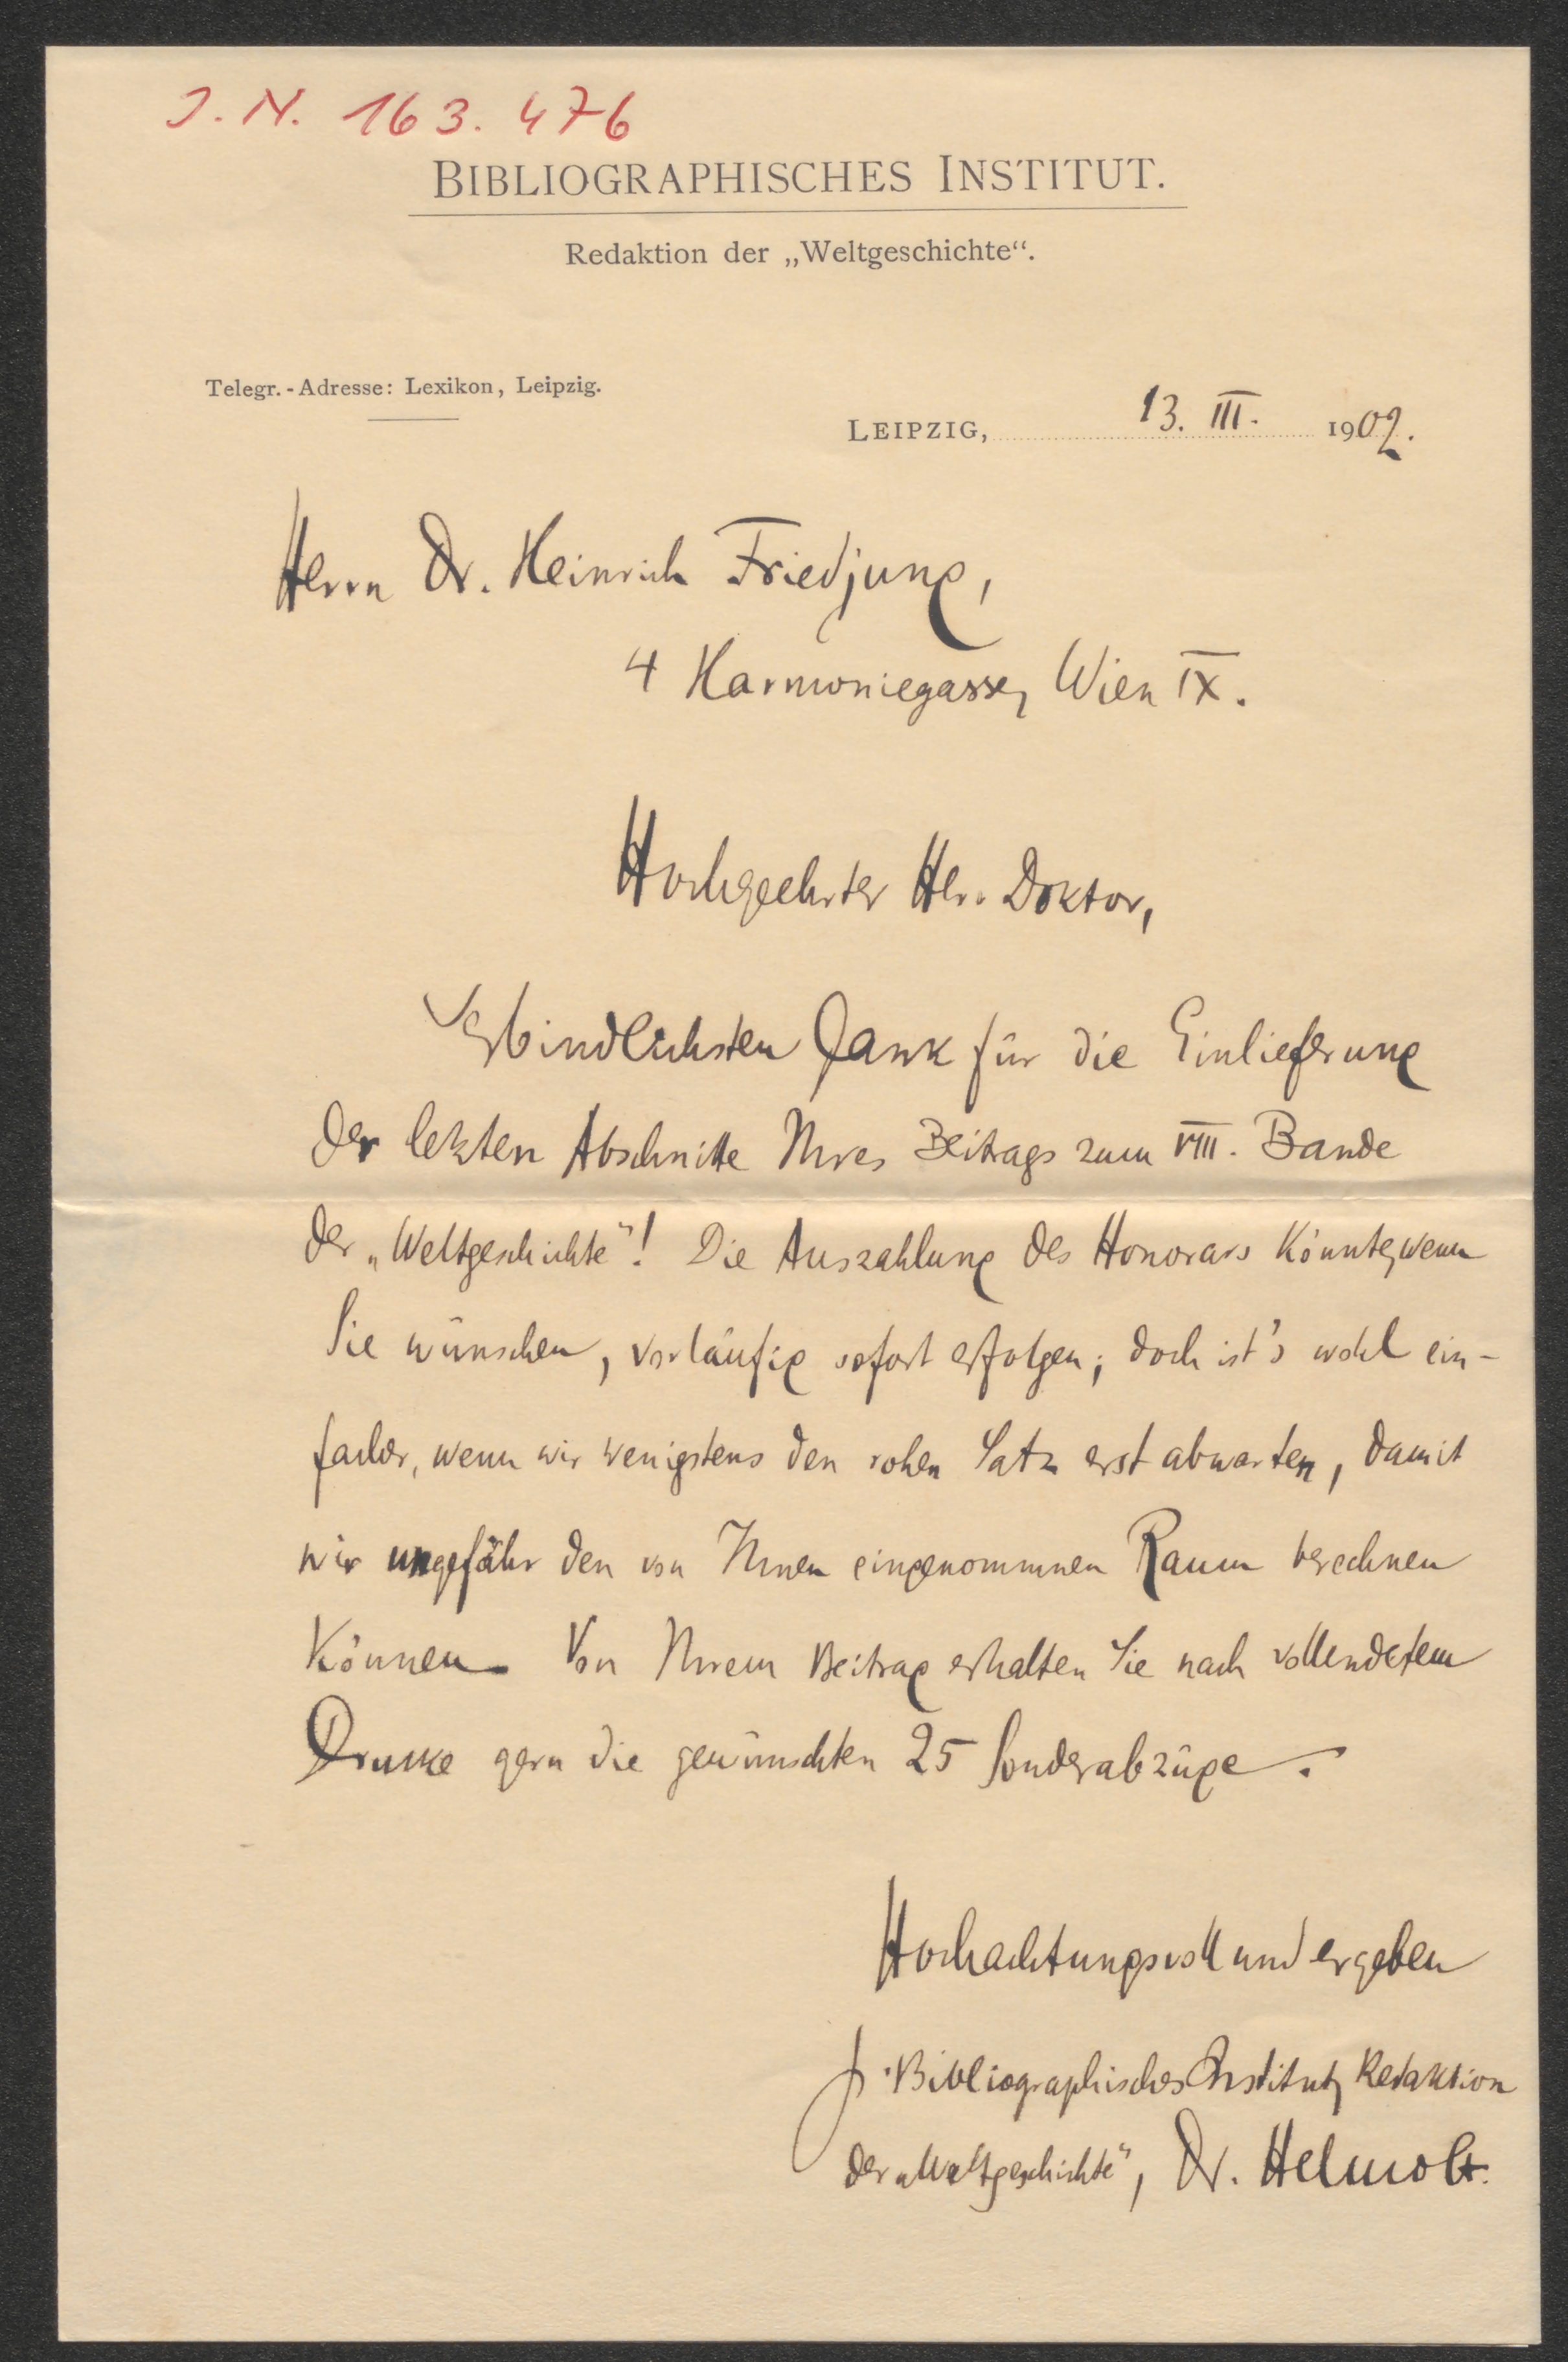 J. N. 163.476
BIBLIOGRAPHISCHES INSTITUT.
Redaktion der „Weltgeschichte“.
Telegr.-Adresse: Lexikon, Leipzig.
LEIPZIG, 13. III. 1902.
Herrn Dr. Heinrich Friedjung,
4 Harmoniegasse, Wien IX.
Hochgeehrter Herr Doktor,
Verbindlichsten Dank für die Einlieferung
der letzten Abschnitte Ihres Beitrags zum VIII. Bande
der „Weltgeschichte“! Die Auszahlung des Honorars könnte, wenn
Sie wünschen, vorläufig sofort erfolgen; doch ist's wohl ein-
facher, wenn wir wenigstens den rohen Satz erst abwarten, damit
wir ungefähr den von Ihnen eingenommnen Raum berechnen
können. Von Ihrem Beitrag erhalten Sie nach vollendetem
Drucke gern die gewünschten 25 Sonderabzüge.
Hochachtungsvoll und ergeben
p. Bibliographisches Institut, Redaktion
der „Weltgeschichte“, Dr. Helmolt.